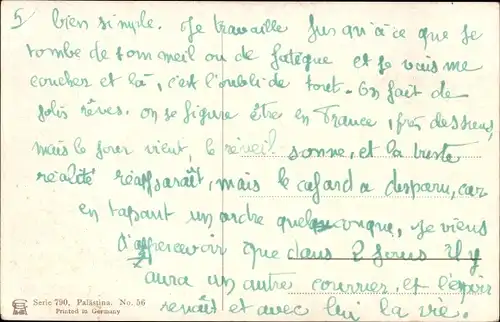 5/ bien simple. Je travaille jusqu'à ce que je
tombe de sommeil ou de fatigue et je vais me
coucher et là, c'est l'oubli de tout. On fait de
jolis rêves. on se figure être en France, près des siens,
mais le jour vient, le réveil sonne, et la triste
réalité réapparaît, mais le cafard a disparu, car
en tapant un ordre quelconque, je viens
d'appercevoir que dans 2 jours il y
aura un autre courrier, et l'espoir
renaît et avec lui la vie.
Serie 790. Palästina. No. 56
Printed in Germany